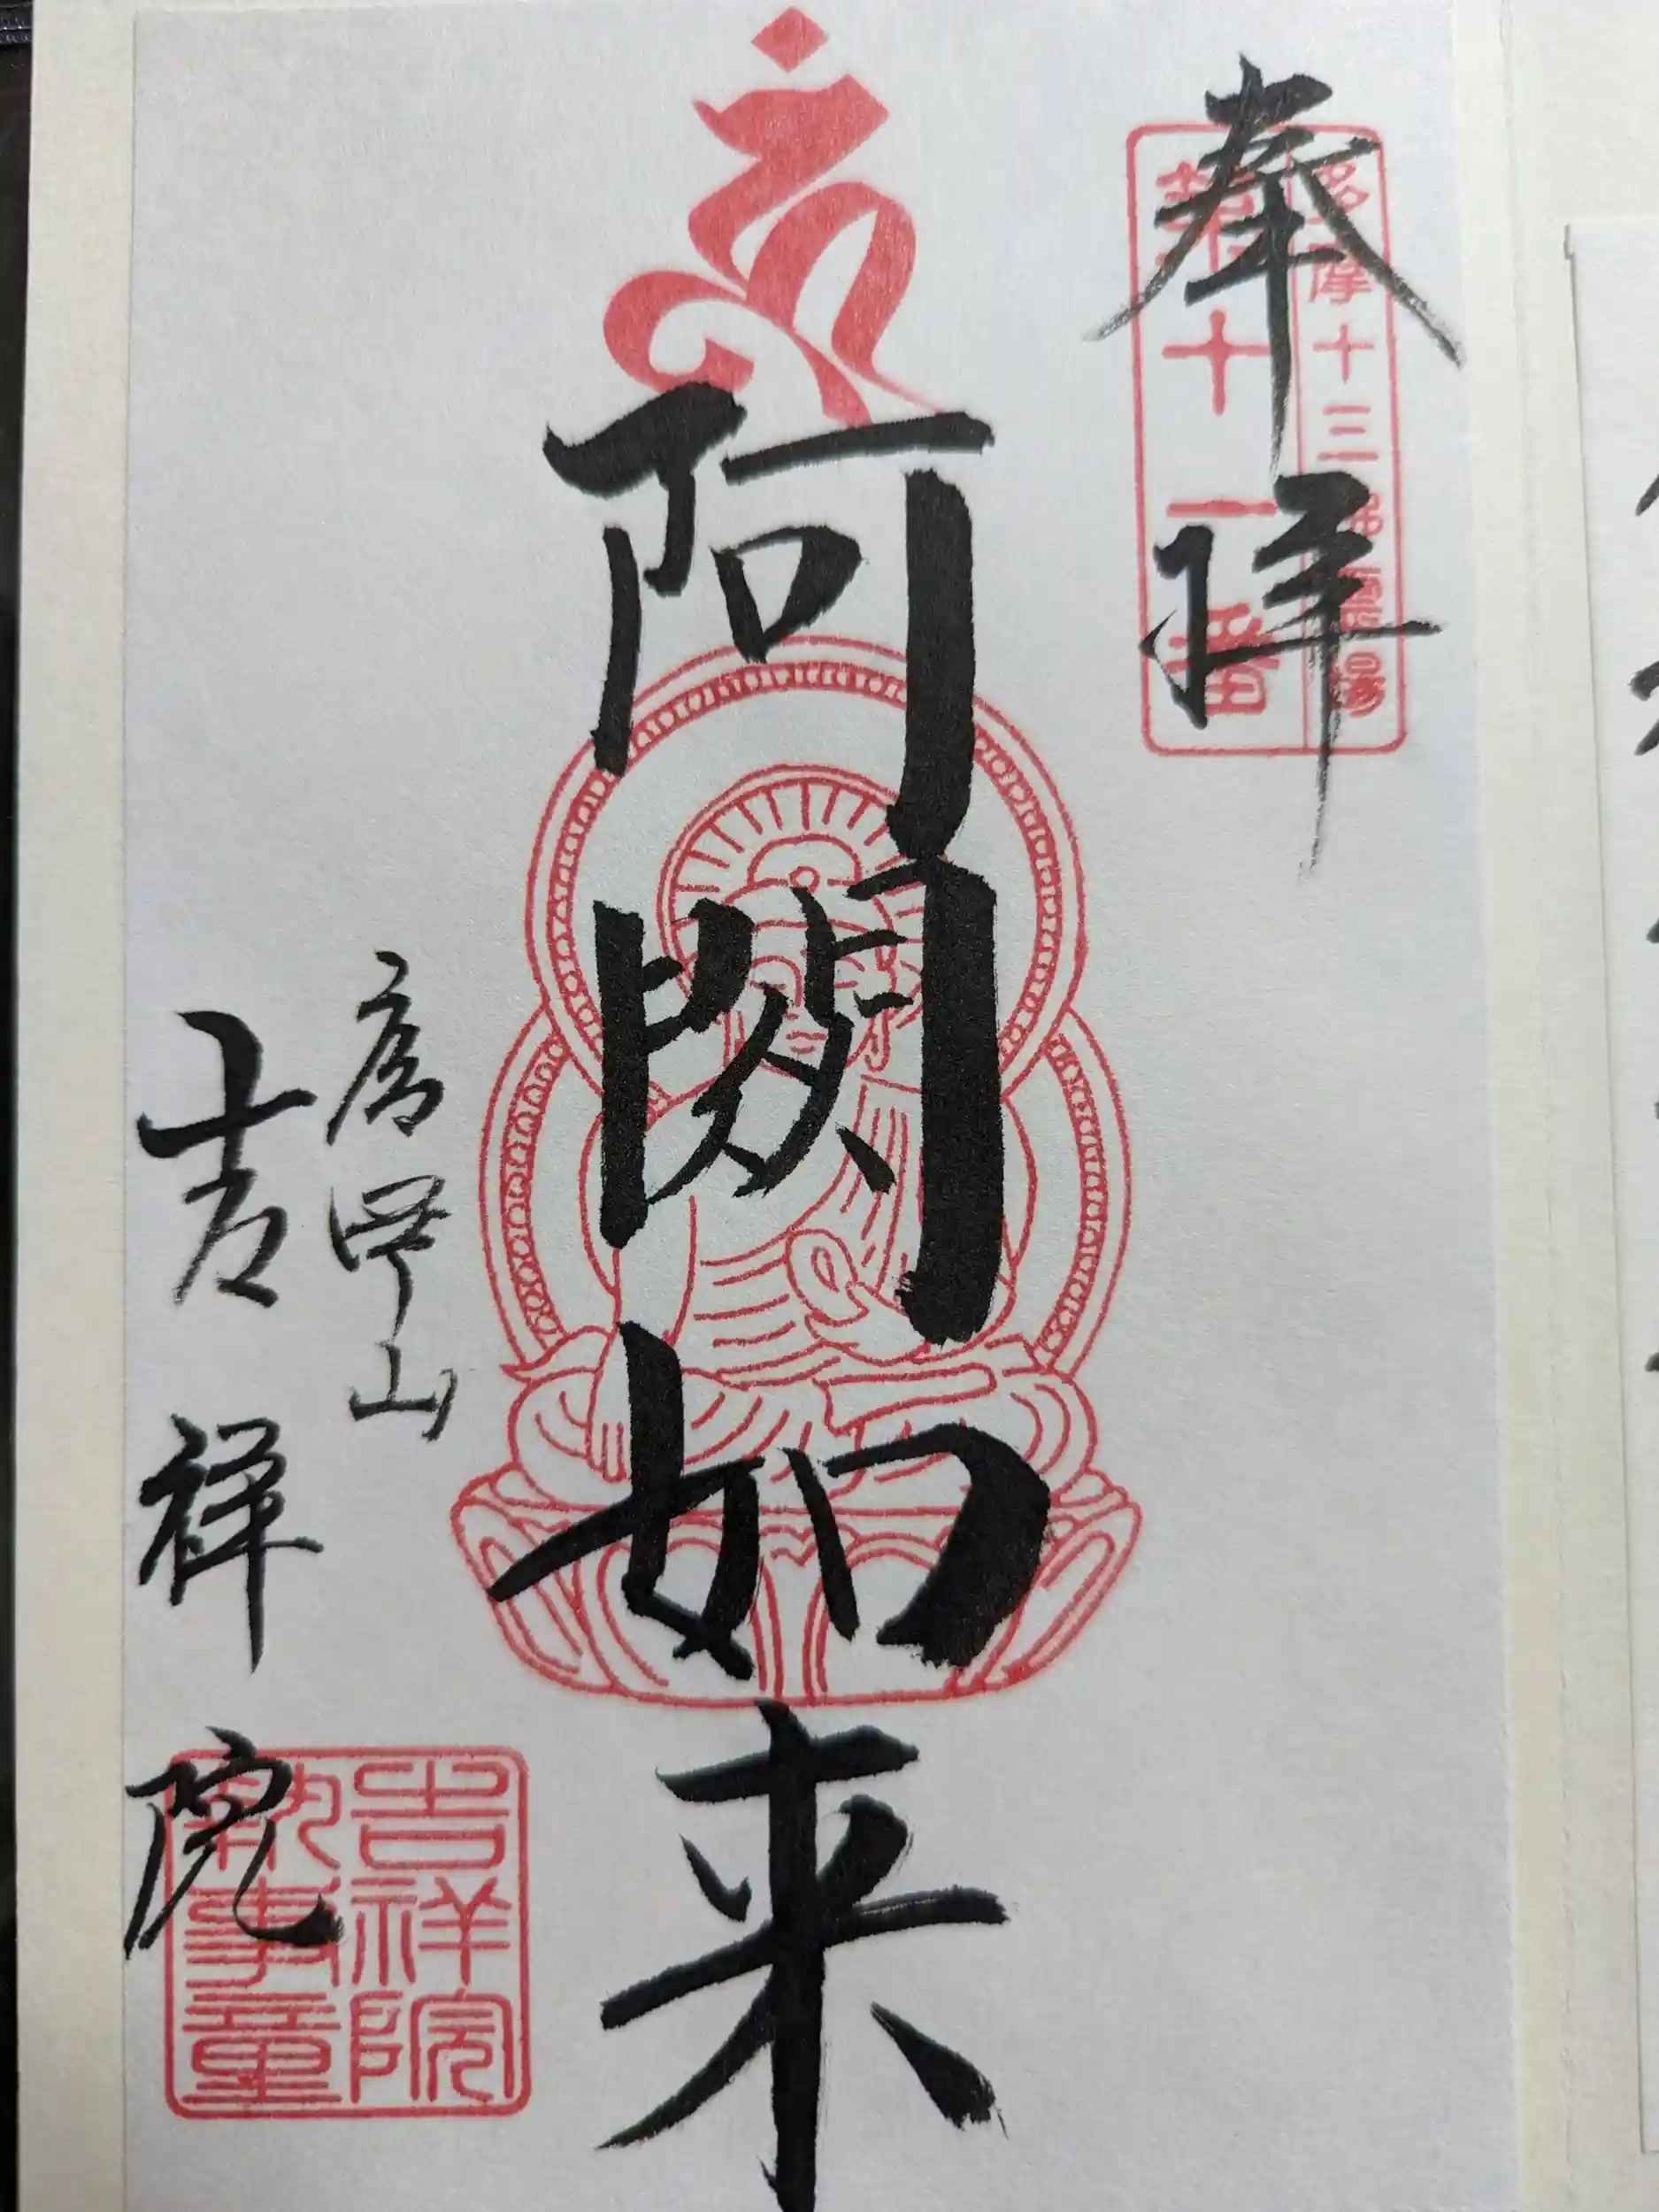 奉拝
多摩十三佛霊場
第十一番
阿閦如来
唐澤山
吉祥院
吉祥院
執事章